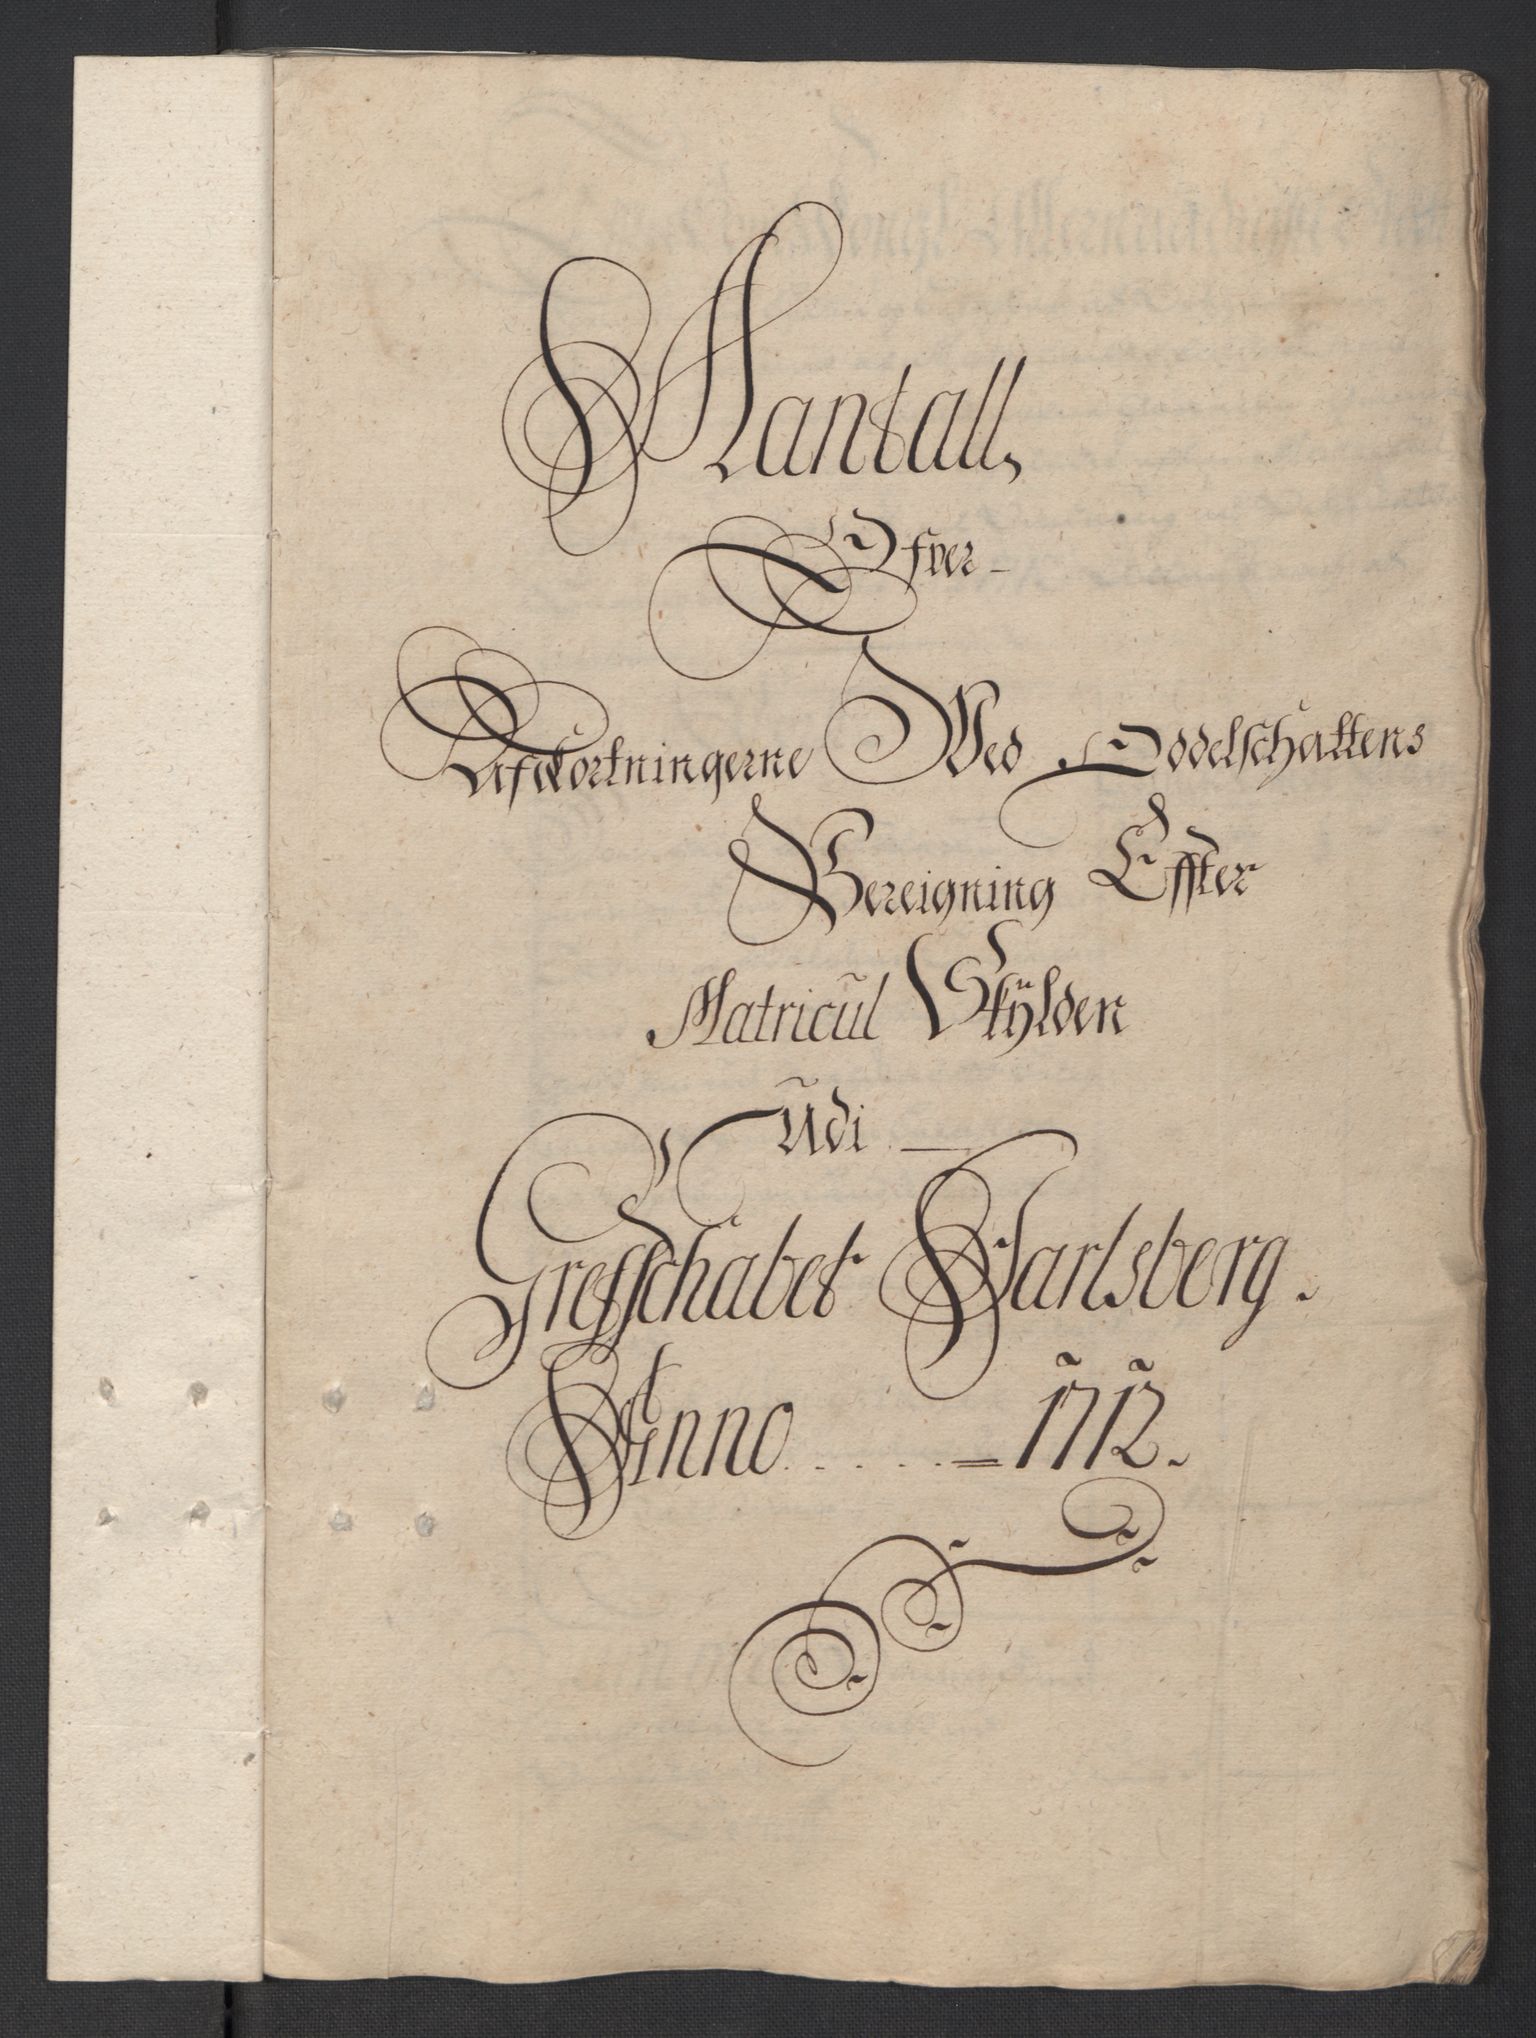 Mantall,
Ofver -
Afkortningerne Ved Oddelschattens
Bereigning Effter
Matricul Skÿlden
Udi
Grefschabet Jarlsberg.
Anno ..... = 1712.